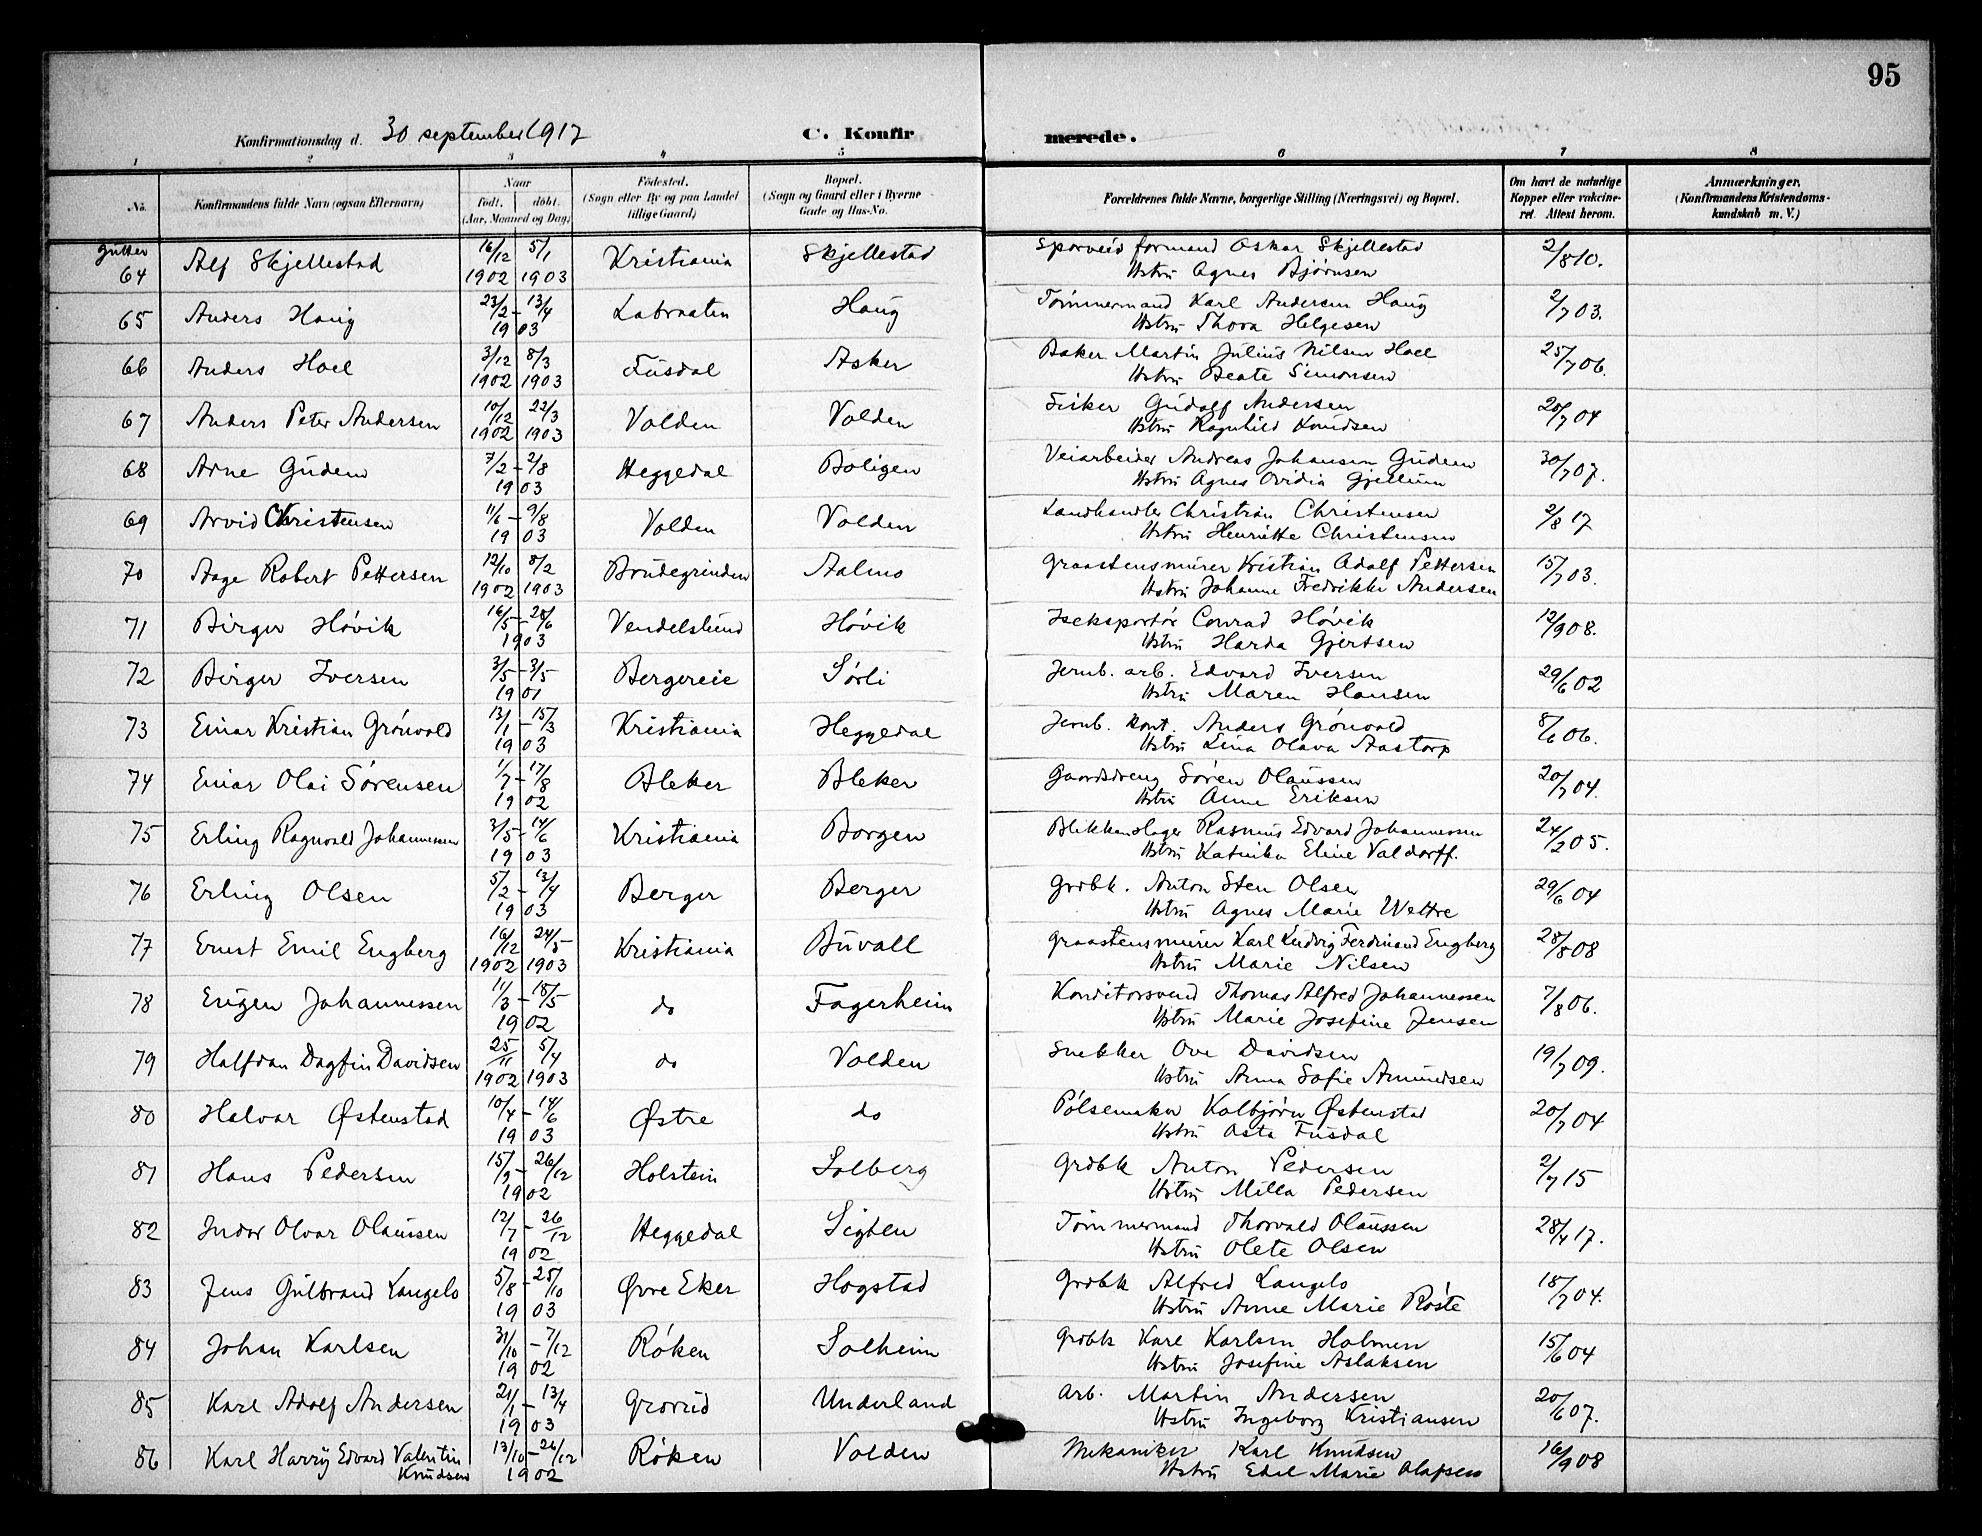 95
Konfirmationsdag d. 30 september 1917 C. Konfirmerede.
1 2 3 4 5 6 7 8
No. Konfirmandens fulde Navn (ogsaa Efternavn) Naar født. døbt. (Aar, Maaned og Dag) Fødested. (Sogn eller By og paa Landet tillige Gaard) Bopæl. (Sogn og Gaard eller i Byerne Gade og Hus-No. Forældrenes fulde Navne, borgerlige Stilling (Næringsvei) og Bopæl. Om havt de naturlige Kopper eller vakcineret. Attest herom. Anmærkninger. (Konfirmandens Kristendomskundskab m. V.)
Gutter
64 Alf Skjellestad 16/12 1902 5/1 1903 Kristiania Skjellestad Sporveisformand Oskar Skjellestad 2/8 10.
Hstru Agnes Bjørnsen
65 Anders Haug 23/2 - 13/4 1903 Labraaten Haug Tømmermand Karl Andersen Haug 2/7 03.
Hstru Thora Helgesen
66 Anders Hoel 3/12 1902 8/3 1903 Fusdal Asker Baker Martin Julius Nilsen Hoel 25/7 06.
Hstru Beate Simonsen
67 Anders Peter Andersen 10/12 1902 22/3 1903 Volden Volden Fisker Gudolf Andersen 20/7 04
Hstru Ragnhild Knudsen
68 Arne Gudem 7/2 - 2/8 1903 Heggedal Boligen Veiarbeider Andreas Johansen Gudem 30/7 07.
Hstru Agnes Ovidia Gjellum
69 Arvid Christensen 11/6 - 9/8 1903 Volden Volden Landhandler Christian Christensen 2/8 17
Hstru Henriette Christensen
70 Aage Robert Pettersen 12/10 1902 8/2 1903 Brudegrinden Aalmo Graastensmurer Kristian Adolf Pettersen 15/7 03.
Hstru Johanne Fredrikke Andersen
71 Birger Høvik 16/5 - 28/6 1903 Vendelslund Høvik Iseksportør Conrad Høvik 12/9 08.
Hstru Harda Gjertsen
72 Birger Iversen 3/5 - 3/5 1901 Bergereie Sørli Jernb. arb. Edvard Iversen 29/6 02
Hstru Maren Hansen
73 Einar Kristian Grönvold 13/1 - 15/3 1903 Kristiania Heggedal Jernb. kont. Anders Grönvold 8/6 06.
Hstru Lina Olava Aastorp
74 Einar Olai Sørensen 1/7 - 17/8 1902 Bleker Bleker Gaardsdreng Søren Olaussen 20/7 04.
Hstru Anne Eriksen
75 Erling Ragnvald Johannessen 3/5 - 14/6 1903 Kristiania Borgen Blikkenslager Rasmus Edvard Johannessen 24/2 05.
Hstru Katinka Eline Valdorff.
76 Erling Olsen 5/2 - 13/4 1903 Berger Berger Grdbk. Anton Sten Olsen 29/6 04
Hstru Agnes Marie Wettre
77 Ernst Emil Engberg 16/12 1902 24/5 1903 Kristiania Buvall Graastensmurer Karl Ludvig Ferdinand Engberg 28/8 08
Hstru Marie Nilsen
78 Eugen Johannessen 11/3 - 18/5 1902 do Fagerheim Konditorsvend Thomas Alfred Johannessen 7/8 06.
Hstru Marie Josefine Jensen
79 Halfdan Dagfin Davidsen 25/11 1902 5/4 1903 do Volden Snekker Ove Davidsen 19/7 09.
Hstru Anna Sofie Amundsen
80 Halvar Østenstad 10/4 - 14/6 1903 Østre do Pølsemaker Kolbjørn Østenstad 20/7 04
Hstru Asta Fusdal
81 Hans Pedersen 15/9 - 26/12 1902 Holstein Solberg Grdbk Anton Pedersen 2/7 15
Hstru Milla Pedersen
82 Indar Olvar Olaussen 12/7 - 26/12 1902 Heggedal Sigten Tømmermand Thorvald Olaussen 28/4 17.
Hstru Olete Olsen
83 Jens Gulbrand Langelo 5/8 - 25/10 1903 Øvre Eker Hogstad Grdbk Alfred Langelo 18/7 04.
Hstru Anne Marie Røste
84 Johan Karlsen 31/10 - 7/12 1902 Røken Solheim Grdbk Karl Karlsen Holmen 15/6 04
Hstru Josefine Aslaksen
85 Karl Adolf Andersen 21/1 - 13/4 1903 Grorud Underland Arb. Martin Andersen 20/6 07.
Hstru Ingeborg Kristiansen
86 Karl Harry Edvard Valentin Knudsen 13/10 - 26/12 1902 Røken Volden Mekaniker Karl Knudsen 16/9 08
Hstru Edel Marie Olafsen